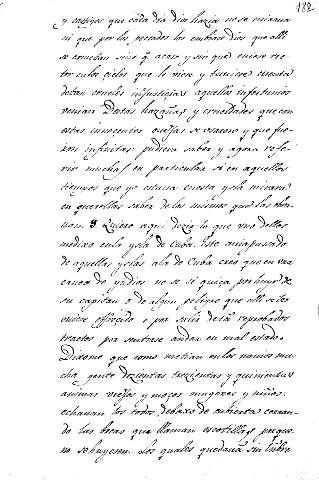 182
y castigos que cada dia dia hazia no se mirava
ni que por los pecados los embiava dios que alli
se cometian sino q acaso y sin que oviese rec
tor en los cielos que lo viese y tuviese cuenta
de tan crueles injusticias aquellos infortunios
venian Destas hazañas y crueldades que con
estas innocentes ovejas se usaron y que fue
ron infinitas pudiera saber y agora refe
rir muchas en particular si en aquellos
tiempos que yo estava en esta ysla mirara
en quererllas saber de los mismos que las obra
van. Quiero aqui dezir lo que uno dellos
me dixo en la ysla de Cuba. Este avia pasado
de aquellas yslas a la de Cuba creo que en una
canoa de yndios no se si quiça por huyr de
su capitan o de algun peligro que alli se le
oviese ofrecido o por salir de tã reprobados
tractos por sentirse andar en mal estado
Dixome que como metian en los navios mu
cha gente dozientas trezientas y quinientas
animas viejos y moços mugeres y niños
echavan los todos debaxo de cubierta cerran
do las bocas que llaman escotillas porque
no se huyesen. Los quales quedavã sin lubre